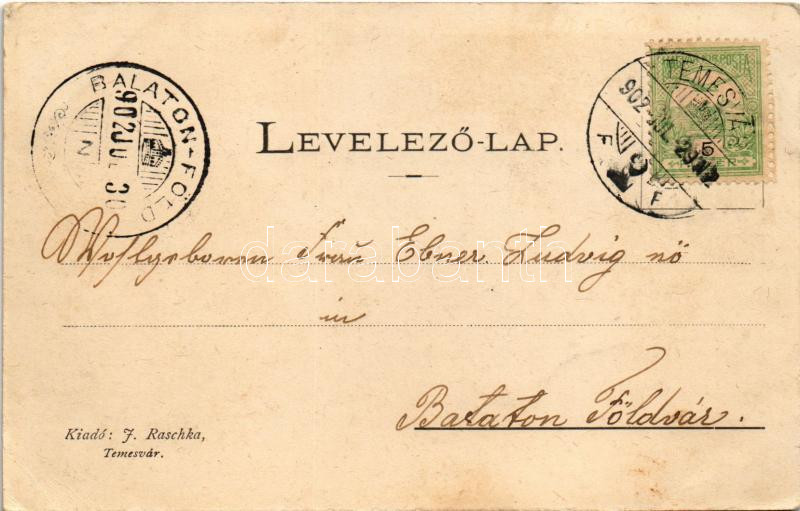 BALATON-FÖLD
902 JUL 30
N
LEVELEZŐ-LAP.
POSTA
TEMESVÁR
902 JUL 29
F
F
5
Wohlgeboren Frau Ebner Ludvig nö
in
Balaton Földvár.
Kiadó: J. Raschka,
Temesvár.
darabanth.com